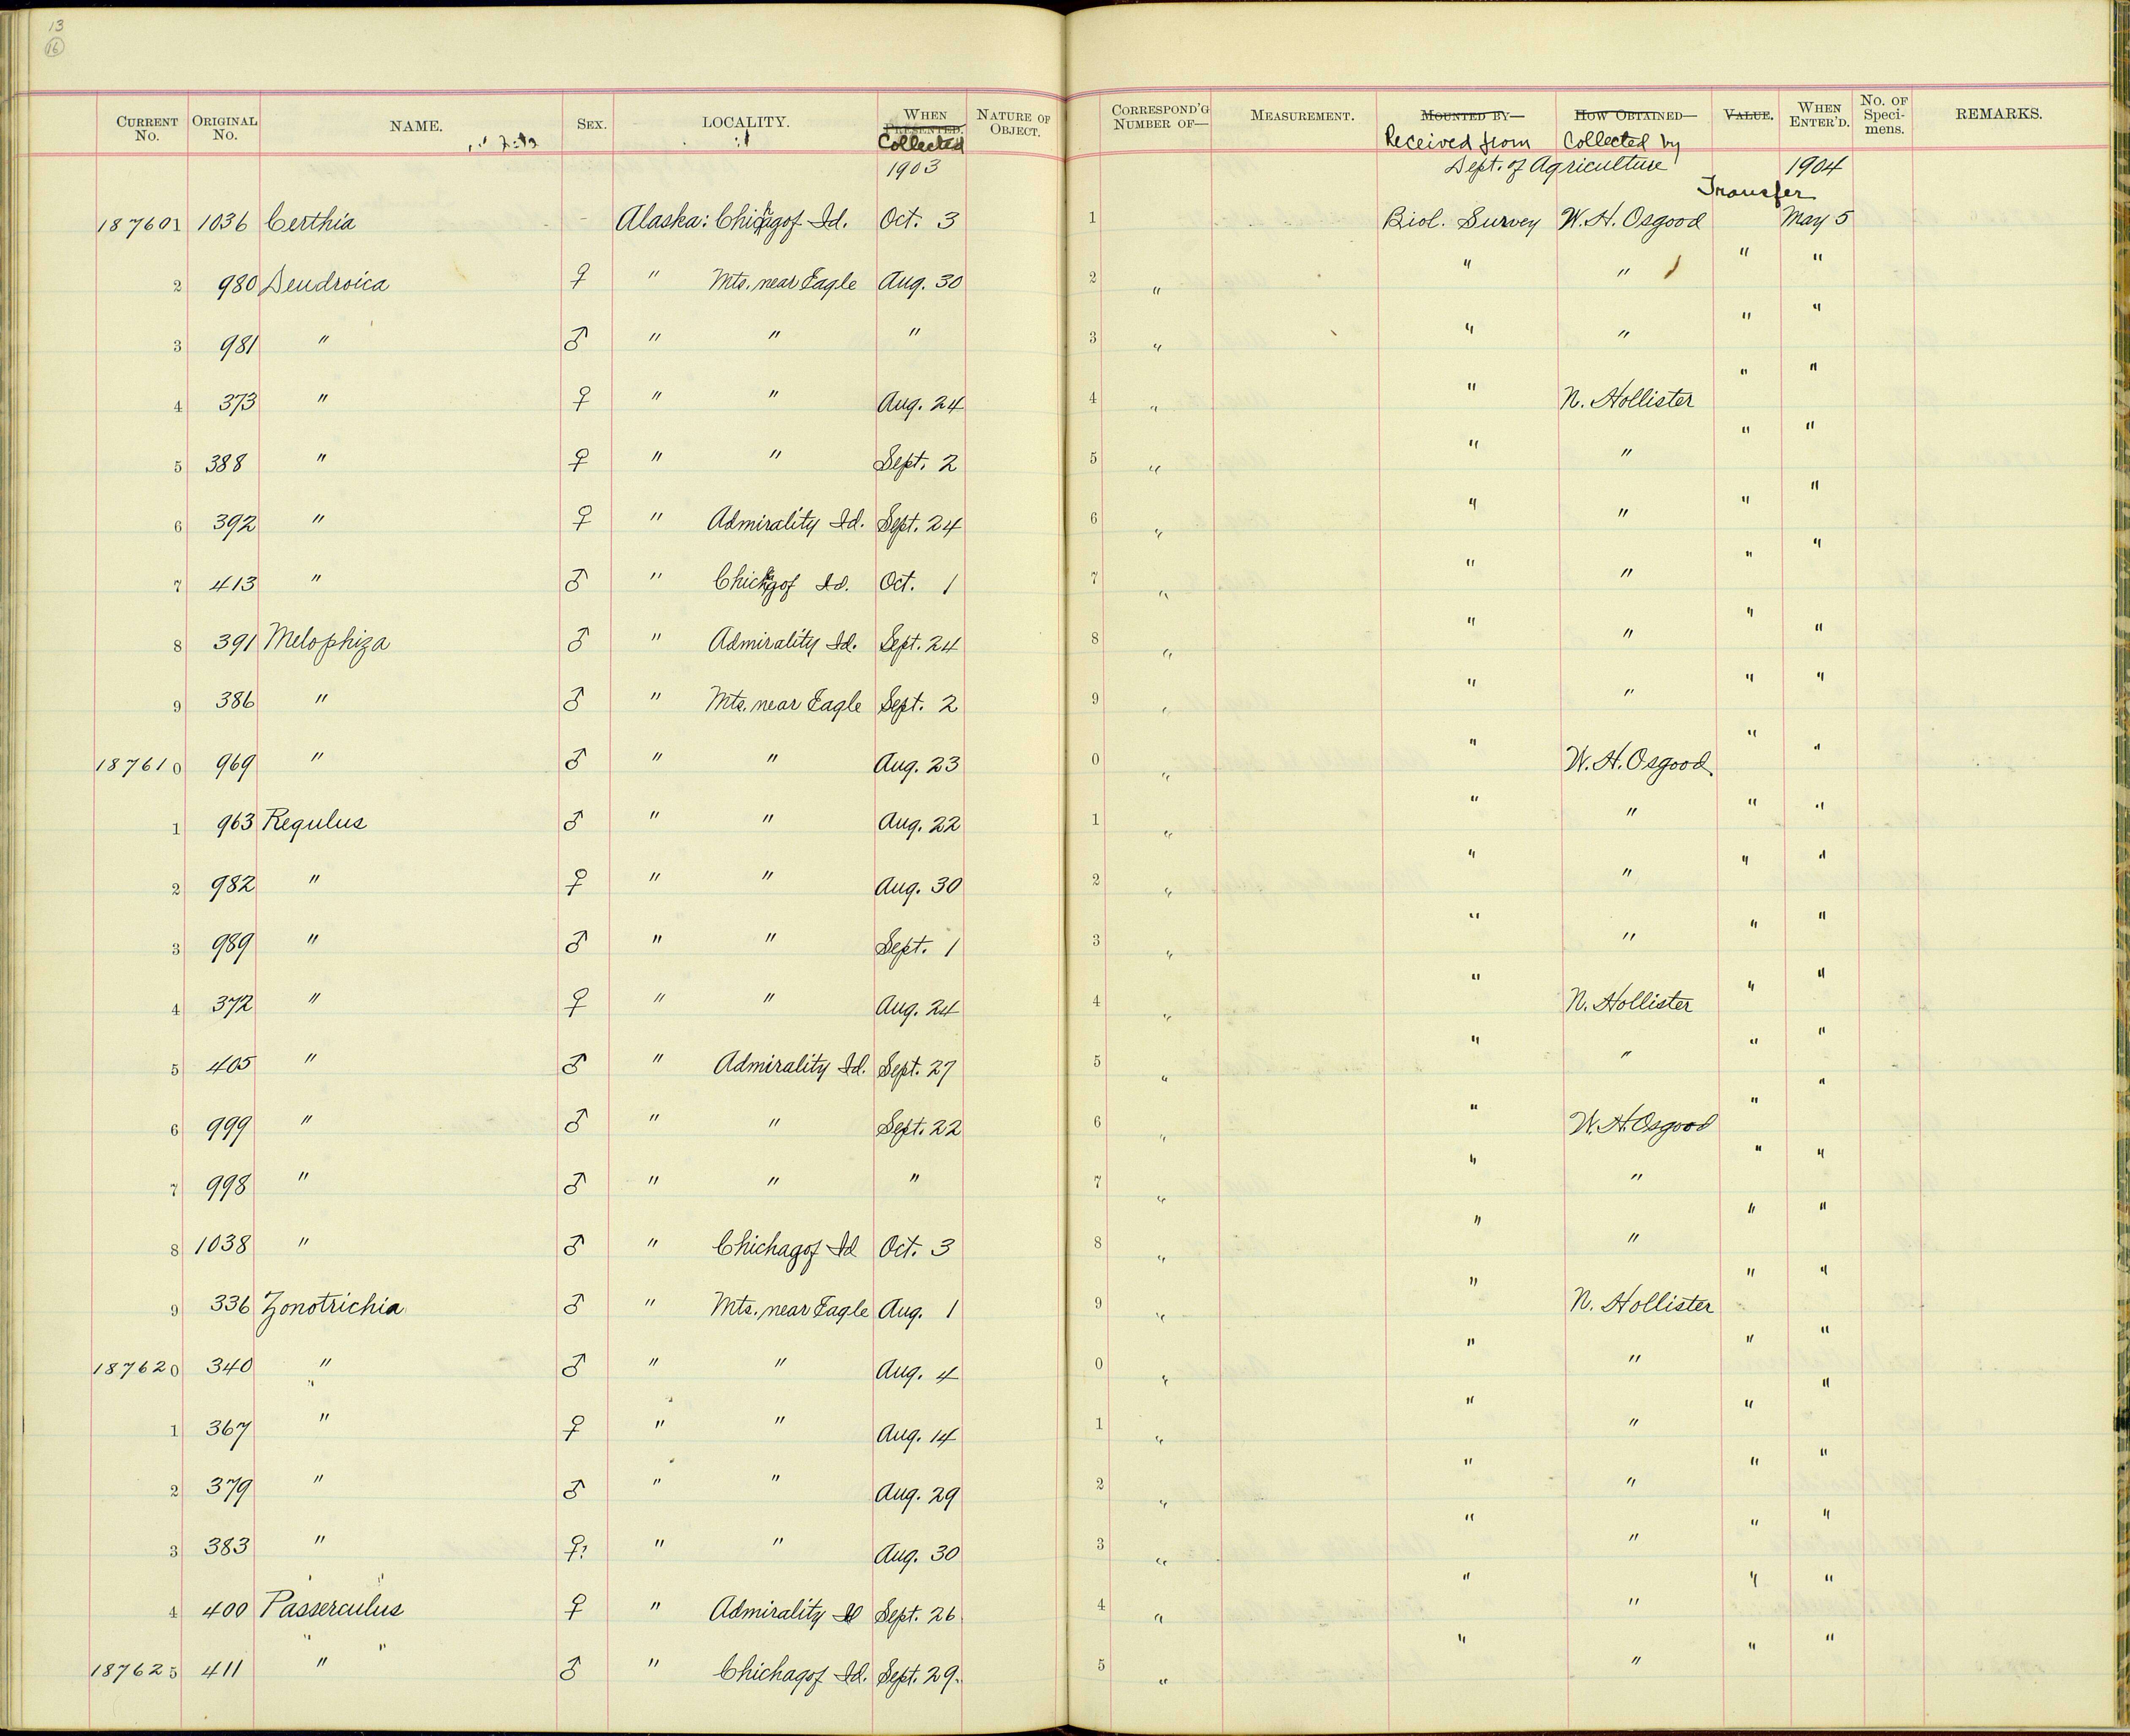 13
16
CURRENT No. ORIGINAL No. NAME. SEX. LOCALITY. WHEN PRESENTED. Collected NATURE OF OBJECT. CORRESPOND'G NUMBER OF— MEASUREMENT. MOUNTED BY— Received from HOW OBTAINED— Collected by VALUE. WHEN ENTER'D. No. OF Specimens. REMARKS.
1903 Dept. of Agriculture 1904
Transfer
187601 1036 Certhia - Alaska: Chichagof Id. Oct. 3 1 Biol. Survey W. H. Osgood May 5
2 980 Dendroica ♀ " Mts. near Eagle Aug. 30 2 " " " " "
3 981 " ♂ " " " 3 " " " " "
4 373 " ♀ " " Aug. 24 4 " " N. Hollister " "
5 388 " ♀ " " Sept. 2 5 " " " " "
6 392 " ♀ " Admirality Id. Sept. 24 6 " " " " "
7 413 " ♂ " Chichagof Id. Oct. 1 7 " " " " "
8 391 Melophiza ♂ " Admirality Id. Sept. 24 8 " " " " "
9 386 " ♂ " Mts. near Eagle Sept. 2 9 " " " " "
187610 969 " ♂ " " Aug. 23 0 " " W. H. Osgood " "
1 963 Regulus ♂ " " Aug. 22 1 " " " " "
2 982 " ♀ " " Aug. 30 2 " " " " "
3 989 " ♂ " " Sept. 1 3 " " " " "
4 372 " ♀ " " Aug. 24 4 " " N. Hollister " "
5 405 " ♂ " Admirality Id. Sept. 27 5 " " " " "
6 999 " ♂ " " Sept. 22 6 " " W. H. Osgood " "
7 998 " ♂ " " " 7 " " " " "
8 1038 " ♂ " Chichagof Id Oct. 3 8 " " " " "
9 336 Zonotrichia ♂ " Mts. near Eagle Aug. 1 9 " " N. Hollister " "
187620 340 " ♂ " " Aug. 4 0 " " " " "
1 367 " ♀ " " Aug. 14 1 " " " " "
2 379 " ♂ " " Aug. 29 2 " " " " "
3 383 " ♀? " " Aug. 30 3 " " " " "
4 400 Passerculus ♀ " Admirality Id Sept. 26 4 " " " " "
187625 411 " ♂ " Chichagof Id. Sept. 29. 5 " " " " "